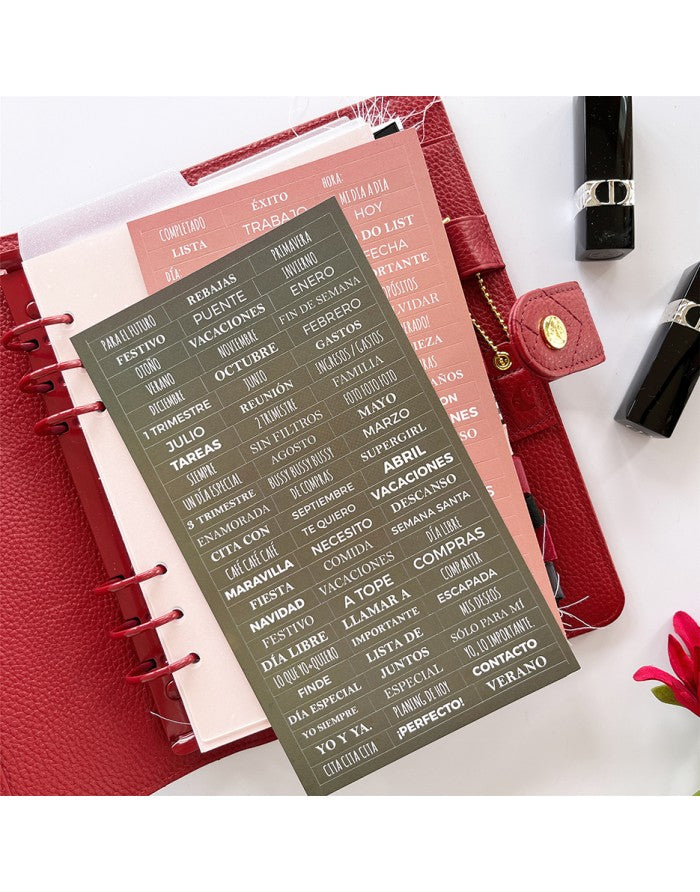 COMPLETADO ÉXITO HORA:
LISTA TRABAJO MI DIA A DIA
DÍA: HOY
DO LIST
FECHA
PARA EL FUTURO REBAJAS PRIMAVERA
FESTIVO PUENTE INVIERNO
OTOÑO VACACIONES ENERO
VERANO NOVIEMBRE FIN DE SEMANA
DICIEMBRE OCTUBRE FEBRERO
1 TRIMESTRE JUNIO GASTOS
JULIO REUNIÓN INGRESOS / GASTOS
TAREAS 2 TRIMESTRE FAMILIA
SIEMPRE SIN FILTROS FOTO FOTO FOTO
UN DÍA ESPECIAL AGOSTO MAYO
3 TRIMESTRE BUSSY BUSSY BUSSY MARZO
ENAMORADA DE COMPRAS SUPERGIRL
CITA CON SEPTIEMBRE ABRIL
CAFÉ CAFÉ CAFÉ TE QUIERO VACACIONES
MARAVILLA NECESITO DESCANSO
FIESTA COMIDA SEMANA SANTA
NAVIDAD VACACIONES DÍA LIBRE
FESTIVO A TOPE COMPRAS
DÍA LIBRE LLAMAR A COMPARTIR
LO QUE YO+QUIERO IMPORTANTE ESCAPADA
FINDE LISTA DE MIS DESEOS
DÍA ESPECIAL JUNTOS SÓLO PARA MÍ
YO SIEMPRE ESPECIAL YO, LO IMPORTANTE.
YO Y YA. PLANING DE HOY CONTACTO
CITA CITA CITA ¡PERFECTO! VERANO